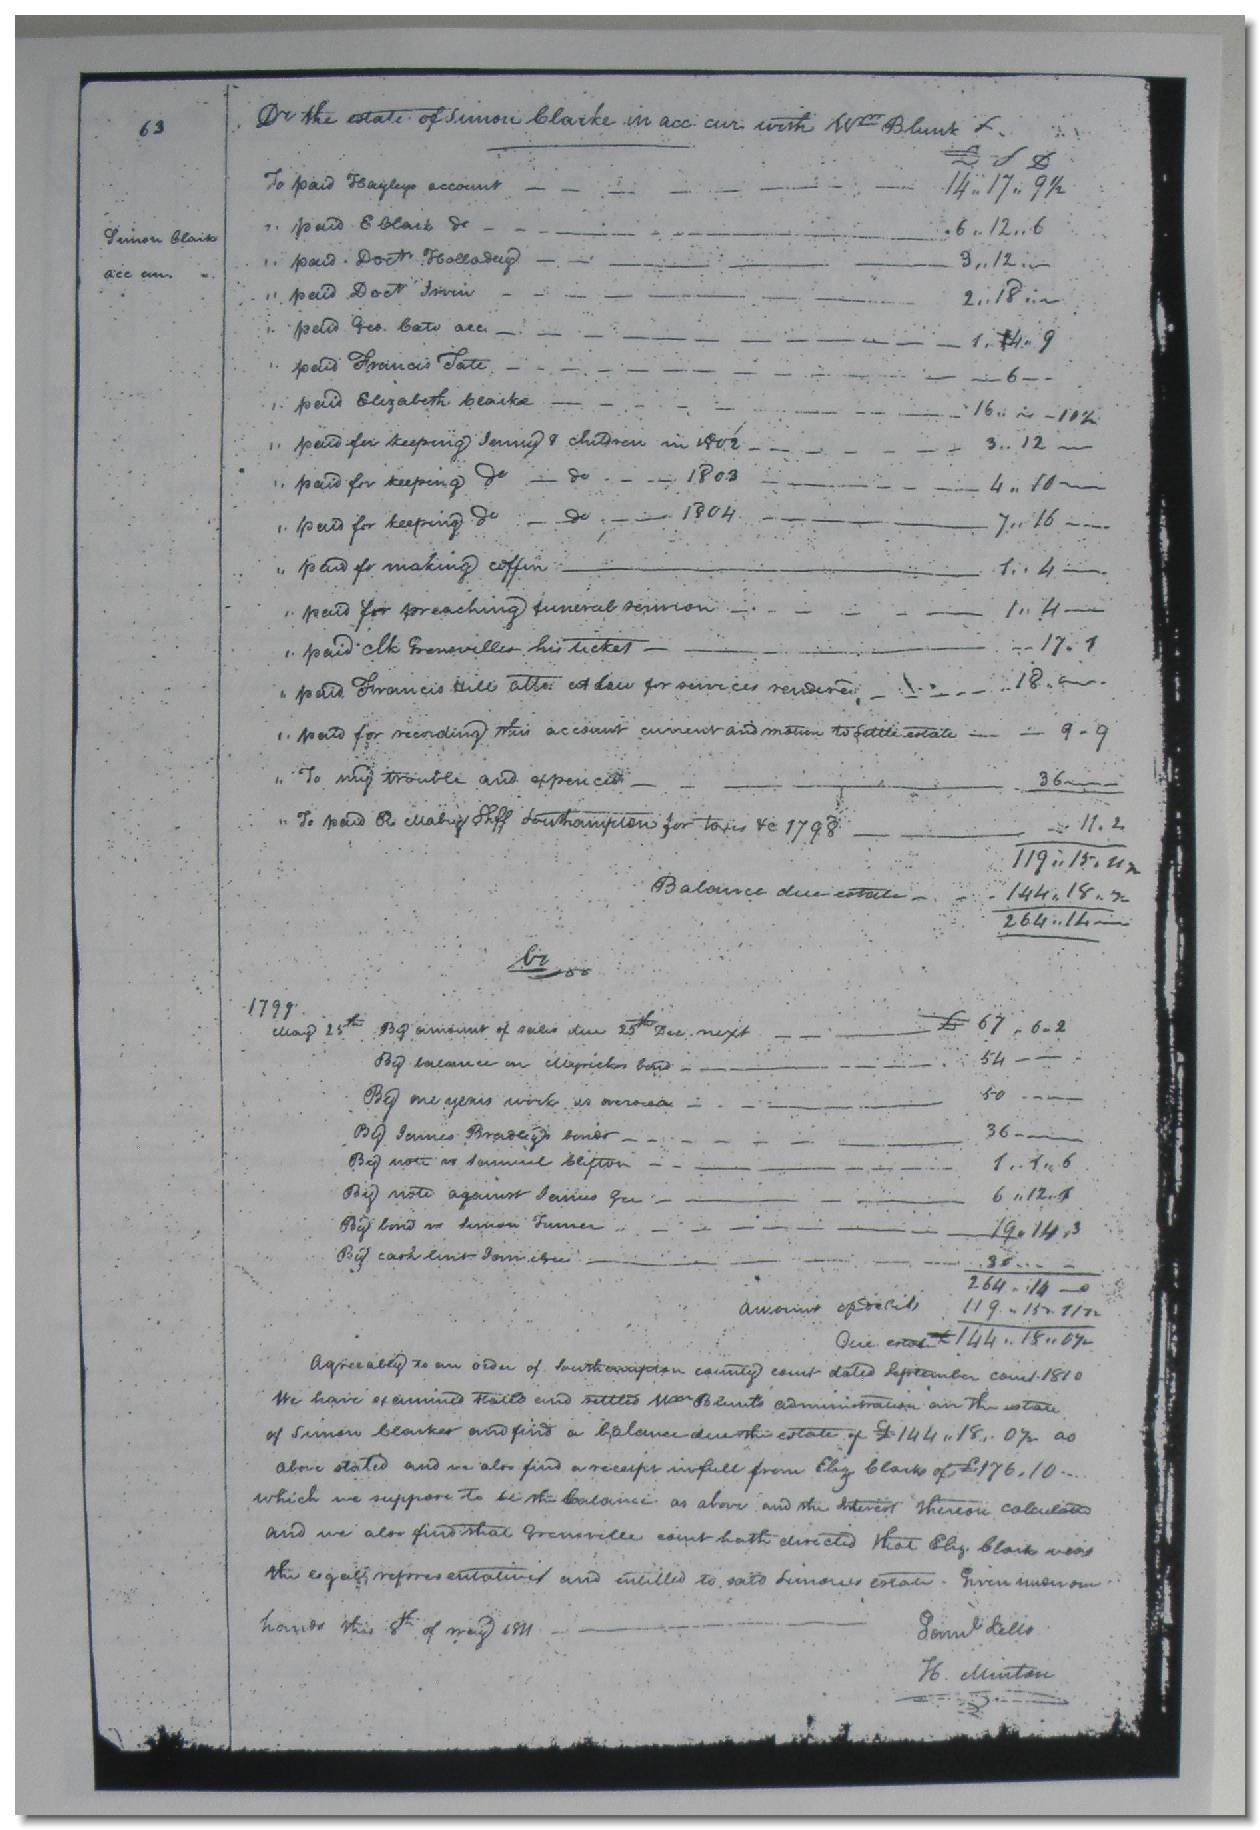 63
Dr the estate of Simon Clarke in acc cur. with Wm Blunt
£ S D
Simon Clark
acc cur.
To paid Hayleys account 14 .. 17 .. 9½
" paid E Clark do 6 .. 12 .. 6
" paid Doctr Holladay 3 .. 12 ..
" paid Doctr Irvin 2 .. 18 ..
" paid Geo. Cato acc 1 .. 14 .. 9
" paid Francis Tate 6
" paid Elizabeth Clarke 16 .. 10½
" paid for keeping Jenny & children in 1802 3 .. 12
" paid for keeping do do 1803 4 .. 10
" paid for keeping do do 1804 7 .. 16
" paid for making coffin 1 .. 4
" paid for preaching funeral sermon 1 .. 4
" paid clk Grensvilles his ticket 17 . 1
" paid Francis Hill atto. at law for services rendered 18
" paid for recording this account current and motion to settle estate 9 - 9
" To my trouble and expences 36
" To paid R Mabry Shff Southampton for taxes &c 1798 11 . 2
119 .. 15 . 11½
Balance due estate 144 .. 18 .. ½
264 .. 14
Cr
1799
May 25th By amount of sales due 25th Dec. next £ 67 . 6 . 2
By balance on Myricks bond 54
By one years work as overseer 50
By James Bradleys bonds 36
By note vs Samuel Clifton 1 .. 1 .. 6
By note against James 6 .. 12 . 1
By bond vs Simon Turner 19 . 14 . 3
By cash lent 30
264 .. 14
amount of debits 119 .. 15 .. 11½
Due estate £144 .. 18 .. 0½
Agreeably to an order of Southampton county court dated September court 1810
We have examined stated and settled Wm Blunts administration on the estate
of Simon Clarkes and find a balance due the estate of £144 .. 18 .. 0½ as
above stated and we also find a receipt in full from Eliz Clark of £176 . 10
which we suppose to be the balance as above and the Interest thereon calculated
and we also find that Grensville court hath directed that Eliz. Clark was
the legal representatives and intitled to said Simons estate. Given under our
hands this 8th of may 1811
Saml Kello
H. Minton